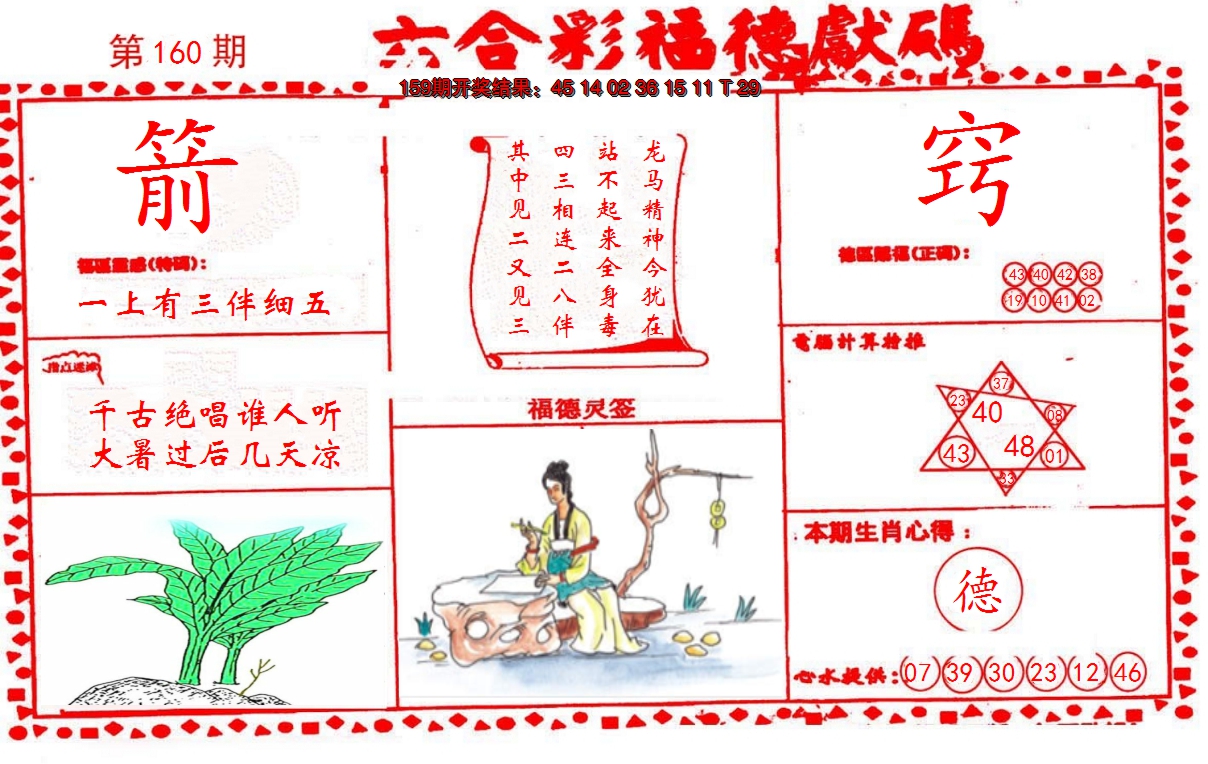 第160期
六合彩福德獻碼
159期开奖结果：45 14 02 36 15 11 T 29
箭
福區靈感(特碼)：
一上有三伴细五
指点迷津
千古绝唱谁人听
大暑过后几天凉
龙马精神今犹在
站不起来全身毒
四三相连二八伴
其中见二又见三
福德灵签
窍
德區賜福(正碼)：
43 40 42 38
19 10 41 02
電腦計算特推
37
23 40 08
43 48 01
33
本期生肖心得：
德
心水提供：07 39 30 23 12 46